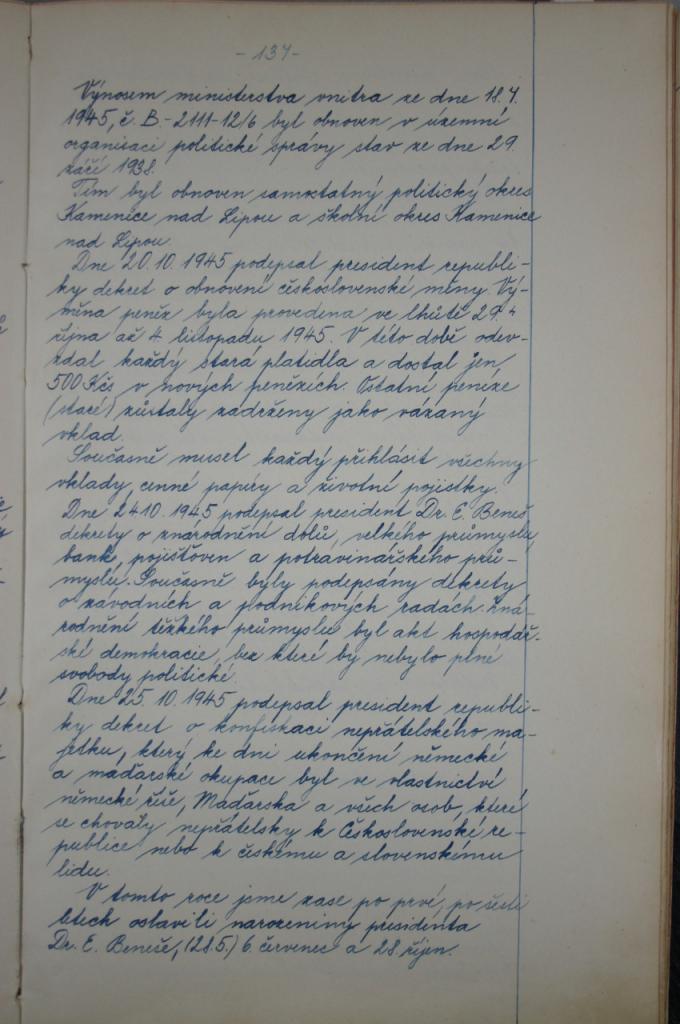 - 137 -
Výnosem ministerstva vnitra ze dne 18.4.
1945, č. B.-2111-12/6 byl obnoven v územní
organisaci politické správy stav ze dne 29.
září 1938.
Tím byl obnoven samostatný politický okres
Kamenice nad Lipou a školní okres Kamenice
nad Lipou.
Dne 20.10.1945 podepsal president republi-
ky dekret o obnovení československé měny. Vý-
měna peněz byla provedena ve lhůtě 29.
října až 4. listopadu 1945. V této době odev-
zdal každý stará platidla a dostal jen
500 Kčs v nových penězích. Ostatní peníze
(staré) zůstaly zadrženy jako vázaný
vklad.
Současně musel každý přihlásit všechny
vklady, cenné papíry a životní pojistky.
Dne 24.10.1945 podepsal president Dr. E. Beneš
dekrety o znárodnění dolů, velkého průmyslu,
bank, pojišťoven a potravinářského prů-
myslu. Současně byly podepsány dekrety
o závodních a podnikových radách. Zná-
rodnění těžkého průmyslu byl akt hospodář-
ské demokracie, bez které by nebylo plné
svobody politické.
Dne 25.10.1945 podepsal president republi-
ky dekret o konfiskaci nepřátelského ma-
jetku, který ke dni ukončení německé
a maďarské okupace byl ve vlastnictví
německé říše, Maďarska a všech osob, které
se chovaly nepřátelsky k Československé re-
publice nebo k českému a slovenskému
lidu.
V tomto roce jsme zase po prvé, po šesti
letech oslavili narozeniny presidenta
Dr. E. Beneše, (28.5.) 6. červenec a 28. říjen.